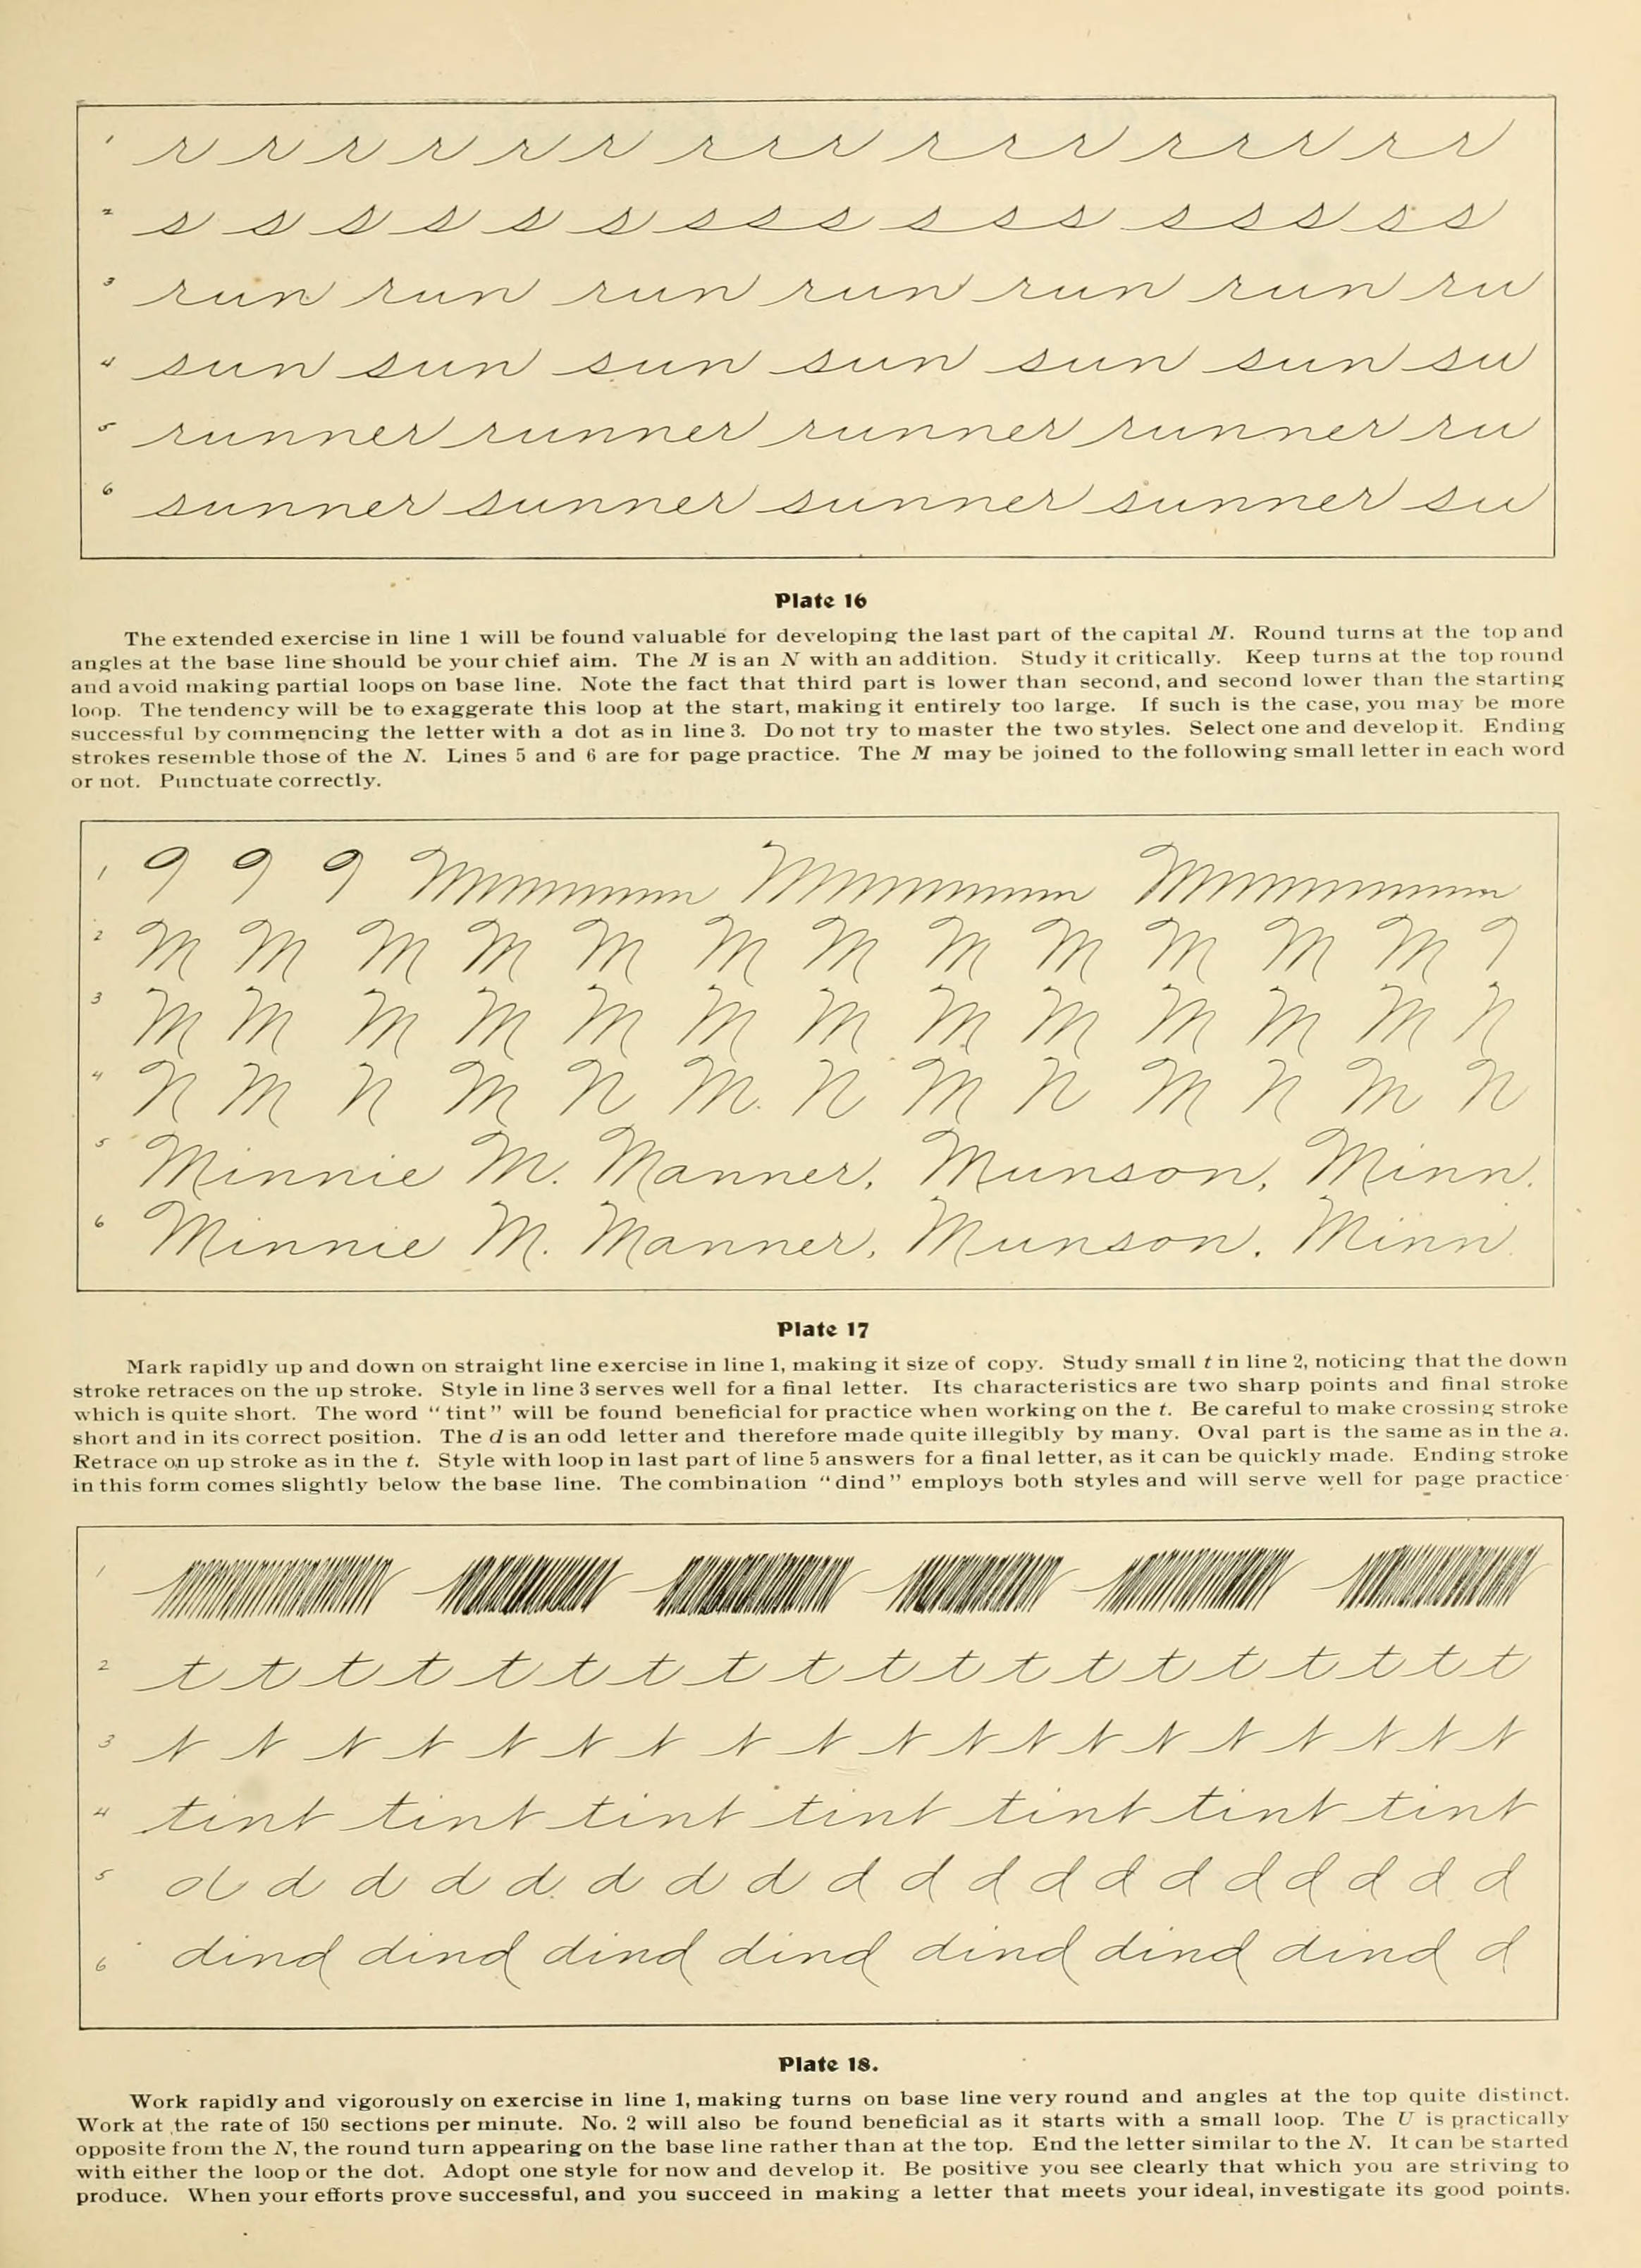 1 r r r r r r rrr rrr rrrrr
2 s s s s s s sss sss sssss
3 run run run run run run ru
4 sun sun sun sun sun sun su
5 runner runner runner runner ru
6 sunner sunner sunner sunner su
Plate 16
The extended exercise in line 1 will be found valuable for developing the last part of the capital M. Round turns at the top and
angles at the base line should be your chief aim. The M is an N with an addition. Study it critically. Keep turns at the top round
and avoid making partial loops on base line. Note the fact that third part is lower than second, and second lower than the starting
loop. The tendency will be to exaggerate this loop at the start, making it entirely too large. If such is the case, you may be more
successful by commencing the letter with a dot as in line 3. Do not try to master the two styles. Select one and develop it. Ending
strokes resemble those of the N. Lines 5 and 6 are for page practice. The M may be joined to the following small letter in each word
or not. Punctuate correctly.
1 9 9 9 Mmmmmm Mmmmmm Mmmmmmm
2 M M M M M M M M M M M M 9
3 M M M M M M M M M M M M N
4 N M N M N M. N M N M N M N
5 Minnie M. Manner, Munson, Minn.
6 Minnie M. Manner, Munson, Minn.
Plate 17
Mark rapidly up and down on straight line exercise in line 1, making it size of copy. Study small t in line 2, noticing that the down
stroke retraces on the up stroke. Style in line 3 serves well for a final letter. Its characteristics are two sharp points and final stroke
which is quite short. The word "tint" will be found beneficial for practice when working on the t. Be careful to make crossing stroke
short and in its correct position. The d is an odd letter and therefore made quite illegibly by many. Oval part is the same as in the a.
Retrace on up stroke as in the t. Style with loop in last part of line 5 answers for a final letter, as it can be quickly made. Ending stroke
in this form comes slightly below the base line. The combination "dind" employs both styles and will serve well for page practice
1
2 t t t t t t t t t t t t t t t t t t t
3 t t t t t t t t t t t t t t t t t t t
4 tint tint tint tint tint tint tint
5 d d d d d d d d d d d d d d d d d d d
6 dind dind dind dind dind dind dind d
Plate 18.
Work rapidly and vigorously on exercise in line 1, making turns on base line very round and angles at the top quite distinct.
Work at the rate of 150 sections per minute. No. 2 will also be found beneficial as it starts with a small loop. The U is practically
opposite from the N, the round turn appearing on the base line rather than at the top. End the letter similar to the N. It can be started
with either the loop or the dot. Adopt one style for now and develop it. Be positive you see clearly that which you are striving to
produce. When your efforts prove successful, and you succeed in making a letter that meets your ideal, investigate its good points.